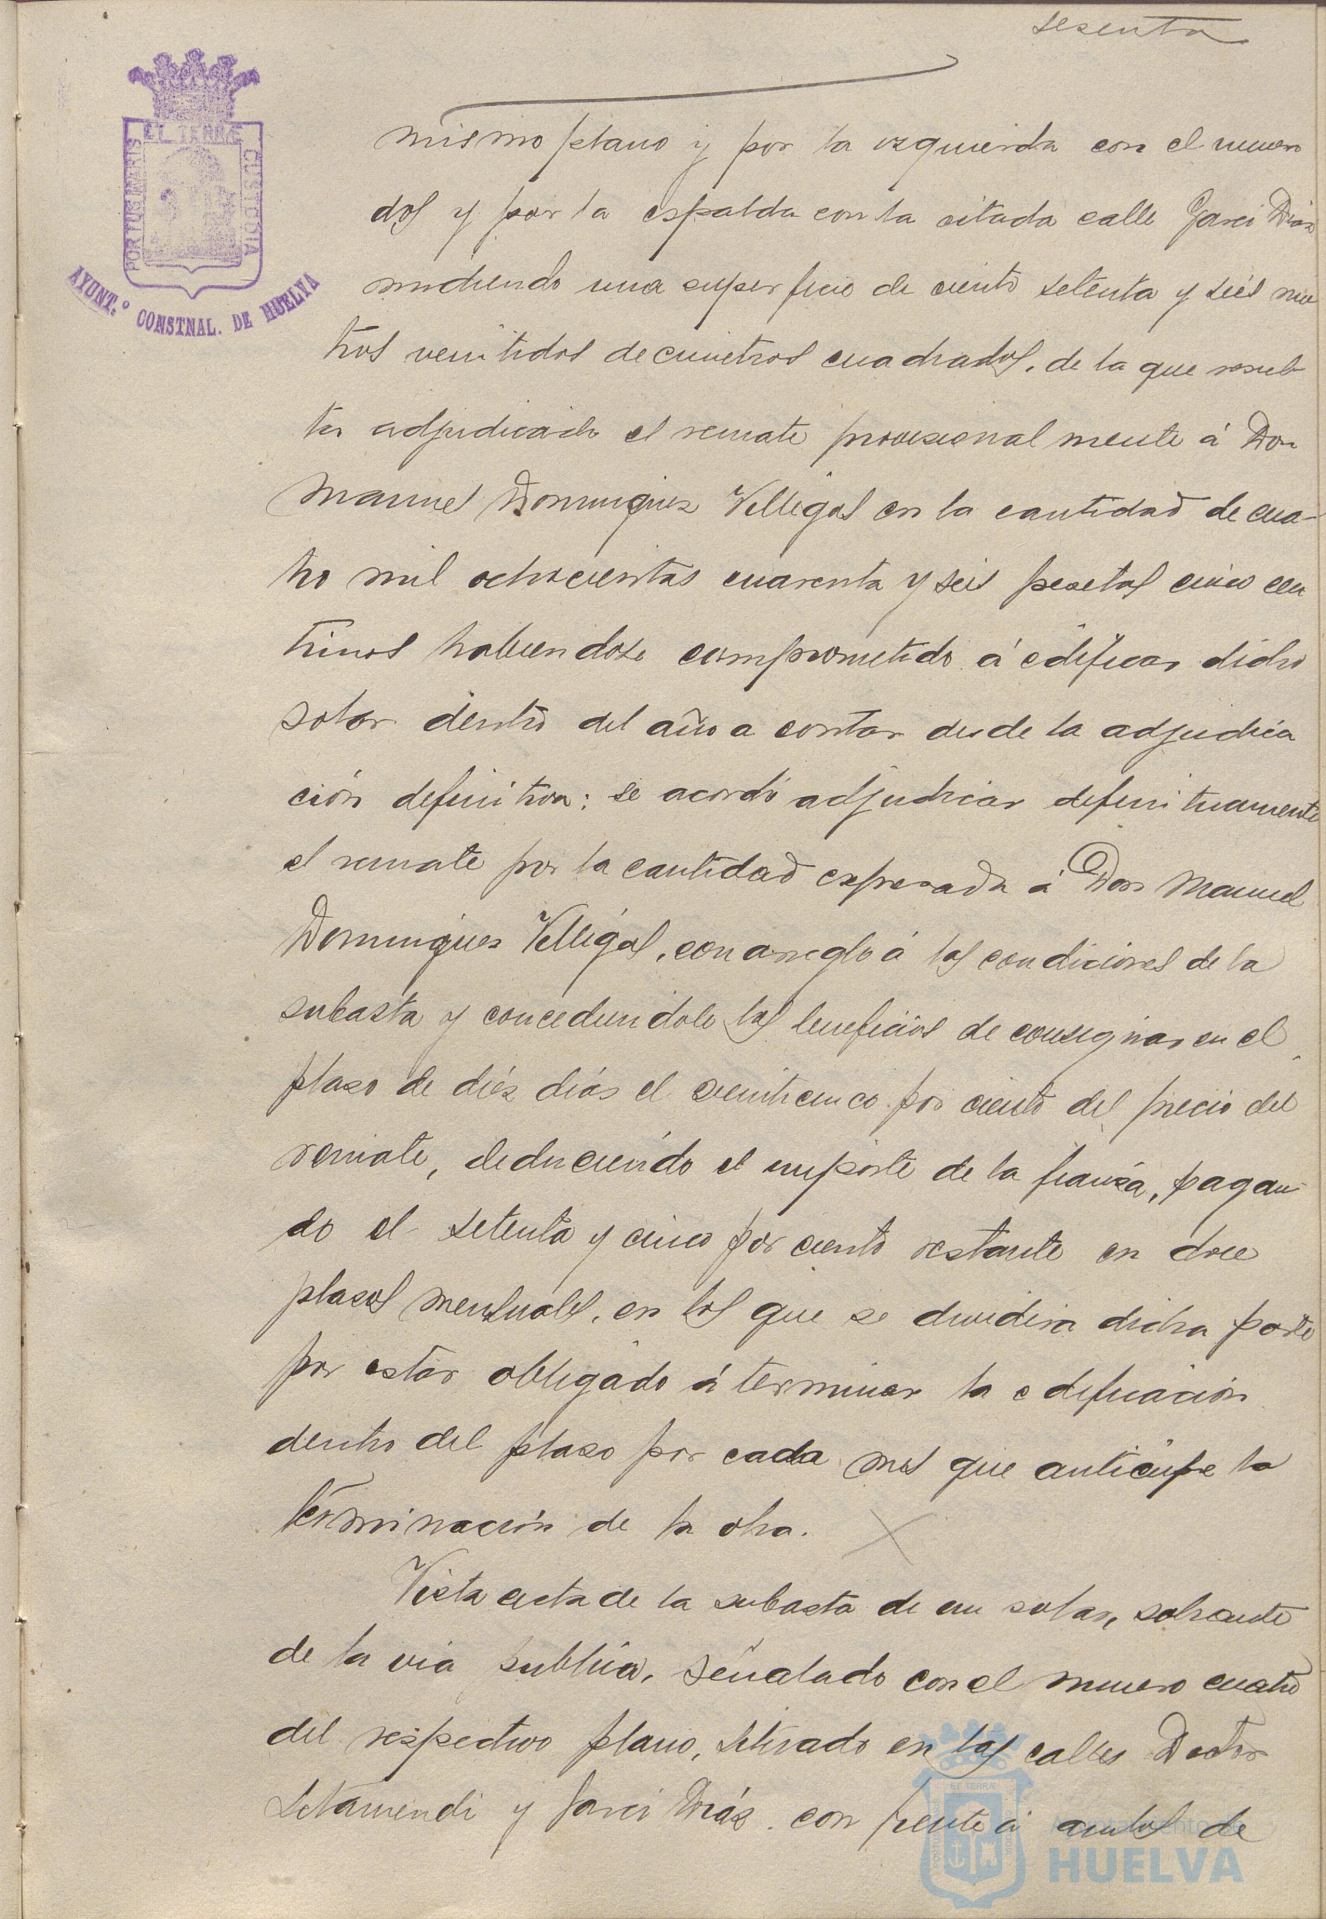 sesenta
EL TERRÆ
PORTUS MARIS
CUSTODIA
AYUNT.º CONSTNAL. DE HUELVA
mismo plano y por la izquierda con el numero
dos y por la espalda con la citada calle Garci Diaz
midiendo una superficie de ciento setenta y seis me
tros veintidos decimetros cuadrados, de la que resul-
ta adjudicado el remate provisionalmente á Don
Manuel Dominguez Villegas en la cantidad de cua-
tro mil ochocientas cuarenta y seis pesetas cinco cen
timos habiendose comprometido á edificar dicho
solar dentro del año a contar desde la adjudica
ción definitiva: se acordó adjudicar definitivamente
el remate por la cantidad expresada á Don Manuel
Dominguez Villegas, con arreglo á las condiciones de la
subasta y concediendole los beneficios de consignar en el
plazo de diéz dias el veinticinco por ciento del precio del
remate, deduciendo el importe de la fianza, pagan-
do el setenta y cinco por ciento restante en doce
plazos mensuales, en los que se dividira dicha parte
por estar obligado á terminar la edificación
dentro del plazo por cada mes que anticipe la
terminación de la obra.
Vista acta de la subasta de un solar, sobrante
de la via publica, señalado con el numero cuatro
del respectivo plano, situado en las calles Doctor
Letamendi y Garci Diáz con frente á ambas de
Ayuntamiento de
HUELVA